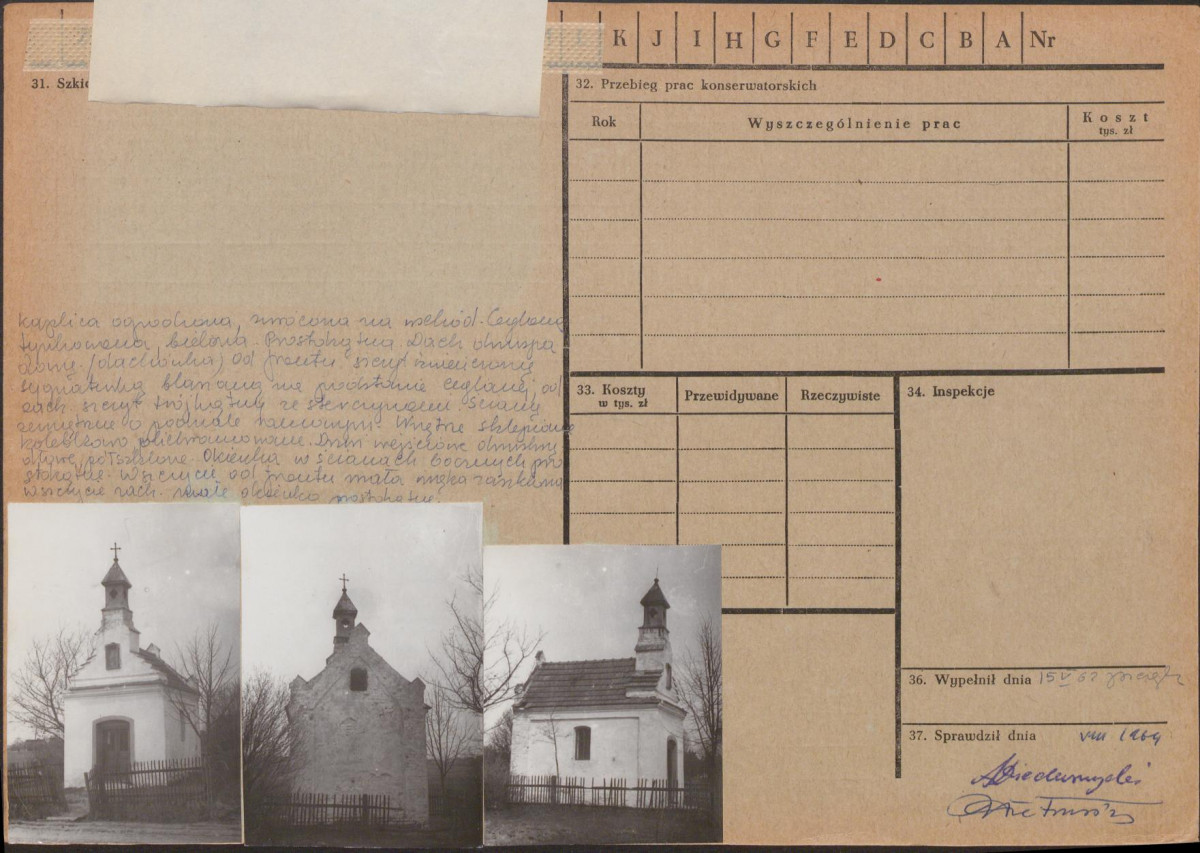 K J I H G F E D C B A Nr
31. Szki
32. Przebieg prac konserwatorskich
Rok
Wyszczególnienie prac
Koszt
tys. zł
kaplica ogrodzona, zwrócona na wschód. Ceglana
tynkowana, bielona. Prostokątna. Dach dwuspa
dowy (dachówka) Od frontu szczyt zwieńczony
sygnaturką blaszaną na podstawie ceglanej, od
zach. szczyt trójkątny ze sterczynami. Ściany
zewnętrzne o podziale ramowym. Wnętrze sklepione
kolebkowo polichromowane. Drzwi wejściowe dwuskrzy
dłowe, półszklone. Okienka w ścianach bocznych pro
stokątne. W szczycie od frontu mała wnęka zaszklona
w szczycie zach. małe okienko prostokątne.
33. Koszty
w tys. zł
Przewidywane
Rzeczywiste
34. Inspekcje
36. Wypełnił dnia 15 V 62
37. Sprawdził dnia VIII 1964